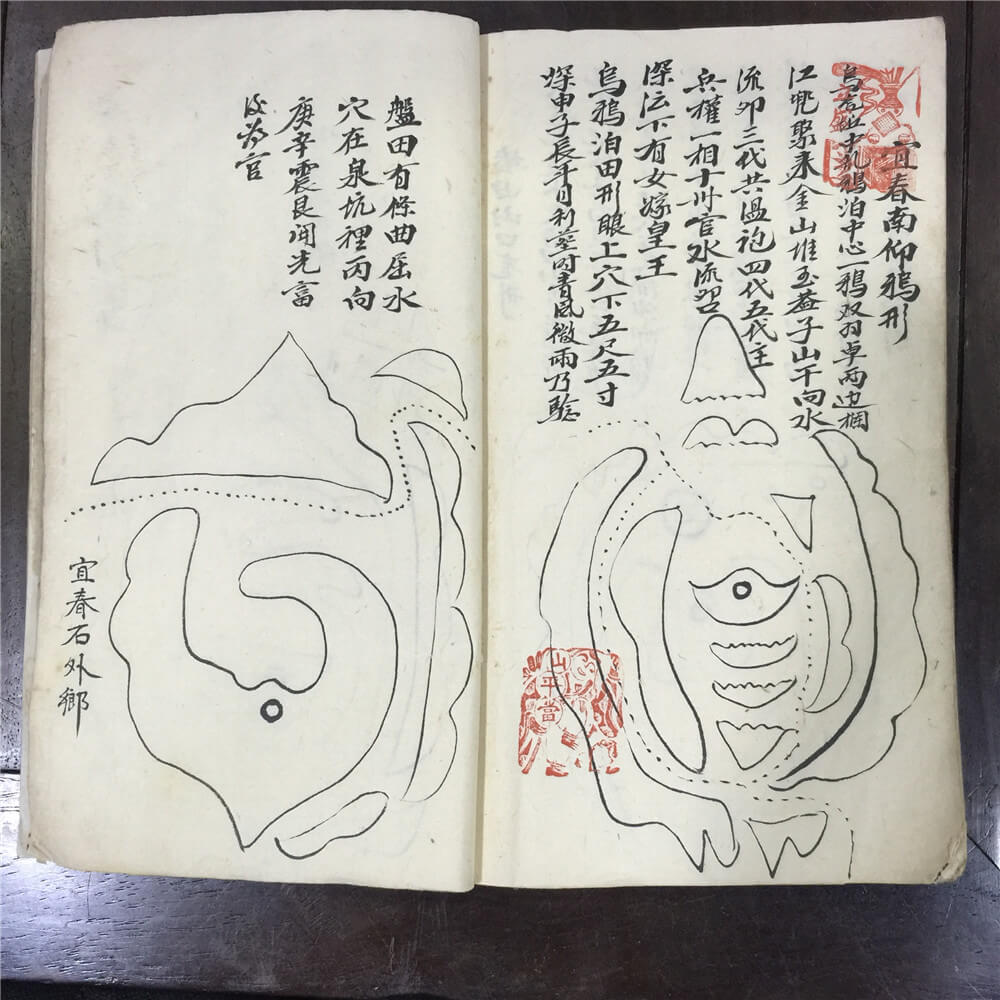 宜春南仰鴉形
烏石中孔鴉泊中心一鴉双羽卓两边
江兜聚来金山堆玉益子山干向水
流卯三代共温袍四代五代主
兵權一相十州官水流
深坛下有女嫁皇王
烏鴉泊田形眼上穴下五尺五寸
深申子辰年月利葬时青风微雨乃
盤田有條曲屈水
穴在泉坑裡丙向
庚辛震艮開光富
為官
宜春石外鄉
山平當